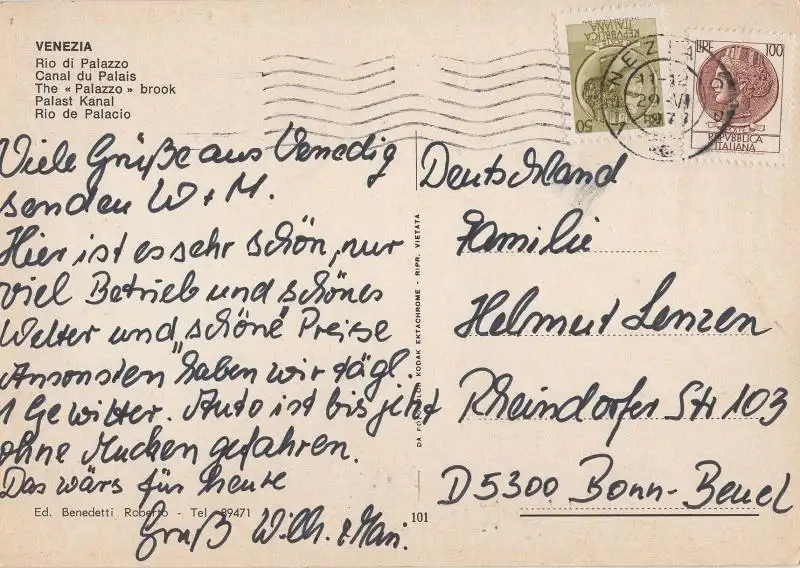 VENEZIA
Rio di Palazzo
Canal du Palais
The « Palazzo » brook
Palast Kanal
Rio de Palacio
Viele Grüße aus Venedig
senden W + M.
Hier ist es sehr schön, nur
viel Betrieb und schönes
Wetter und "schöne" Preise
Ansonsten haben wir tägl.
1 Gewitter. Auto ist bis jetzt
ohne Mucken gefahren.
Das wärs für heute
Gruß Wilh. + Mari.
Ed. Benedetti Roberto - Tel. 89471
101
DA FOTOCOLOR KODAK EKTACHROME - RIPR. VIETATA
50
REPVBBLICA
ITALIANA
LIRE 100
REPVBBLICA
ITALIANA
VENEZIA
11-12
29 VI
1977
Deutschland
Familie
Helmut Lenzen
Rheindorfer Str 103
D 5300 Bonn-Beuel